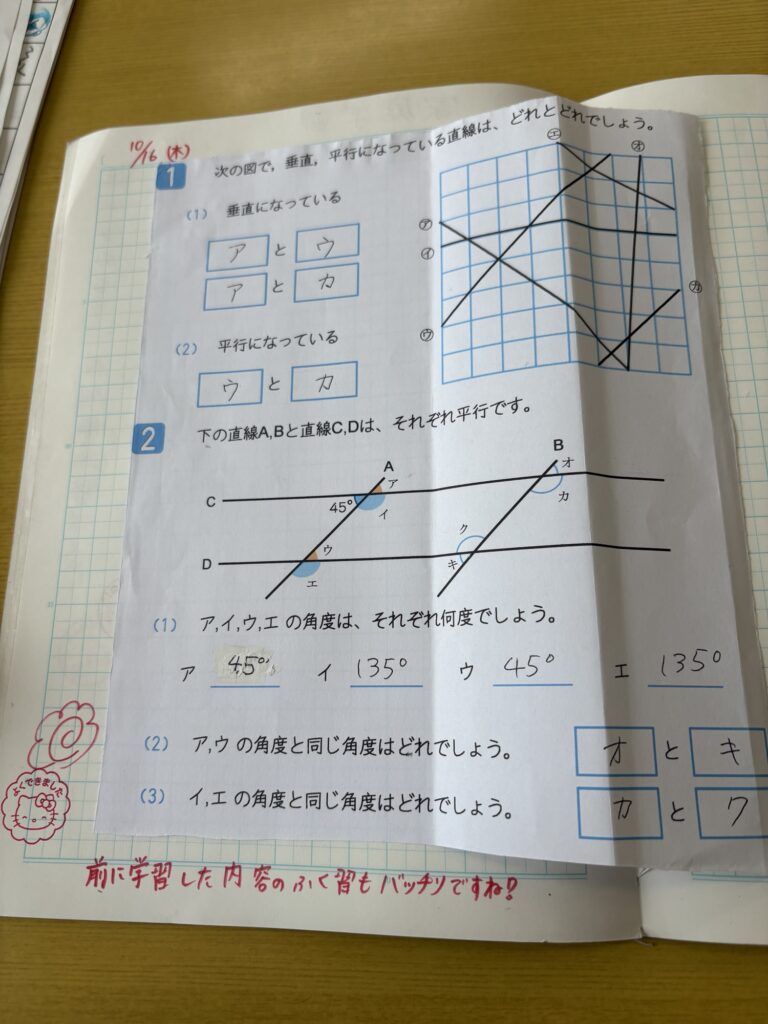 10/16 (木)
1 次の図で，垂直，平行になっている直線は、どれとどれでしょう。
(1) 垂直になっている
ア と ウ
ア と カ
(2) 平行になっている
ウ と カ
㋐
㋑
㋒
㋓
㋔
㋕
2 下の直線A,Bと直線C,Dは、それぞれ平行です。
A
B
C
D
45°
ア
イ
ウ
エ
オ
カ
ク
キ
(1) ア,イ,ウ,エ の角度は、それぞれ何度でしょう。
ア 45° イ 135° ウ 45° エ 135°
(2) ア,ウ の角度と同じ角度はどれでしょう。 オ と キ
(3) イ,エ の角度と同じ角度はどれでしょう。 カ と ク
よくできました
前に学習した内容のふく習もバッチリですね!